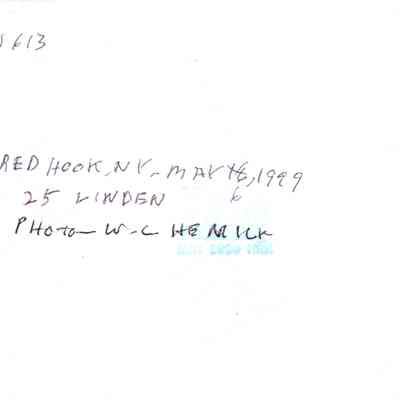 613
RED HOOK, NY - MAY 16, 1999
6
25 LINDEN
PHOTO - W-C HERRICK